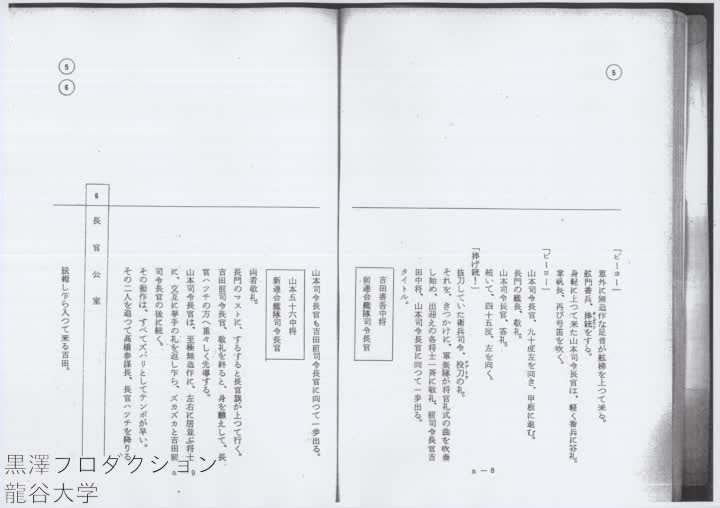 5
「ピーヨー」
意外に無造作な足音が舷梯を上つて来る。
舷門番兵、捧銃をする。
身軽に上つて来た山本司令長官は、軽く番兵に答礼。
掌帆長、再び号笛を吹く。
「ピーヨー」
山本司令長官、九十度左を向き、甲板に進む。
長門の艦長、敬礼。
山本司令長官、答礼。
続いて、四十五度、左を向く。
「捧げ銃！」
抜刀していた衛兵司令、投刀の礼。
それを、きつかけに、軍楽隊が将官礼式の曲を吹奏
し始め、出迎えの各将士一斉に敬礼、前司令長官吉
田中将、山本司令長官に向つて一歩出る。
タイトル。
吉田善吾中将
前連合艦隊司令長官
a－8
5
6
山本司令長官も吉田前司令長官に向つて一歩出る。
山本五十六中将
新連合艦隊司令長官
両者敬礼。
長門のマストに、するすると長官旗が上つて行く。
吉田前司令長官、敬礼を終ると、身を飜えして、長
官ハツチの方へ重々しく先導する。
山本司令長官は、至極無造作に、左右に居並ぶ将士
に、交互に挙手の礼を返し乍ら、ズカズカと吉田前
司令長官の後に続く。
その動作は、すべてズバリとしてテンポが早い。
その二人を追つて高橋参謀長、長官ハツチを降りる
6 長官公室
脱帽し乍ら入つて来る吉田。
a－9
黒澤プロダクション
龍谷大学